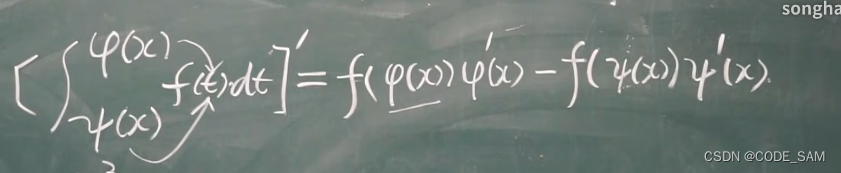 songha
[∫_{ψ(x)}^{φ(x)} f(t)dt]' = f(φ(x))φ'(x) - f(ψ(x))ψ'(x).
CSDN @CODE_SAM